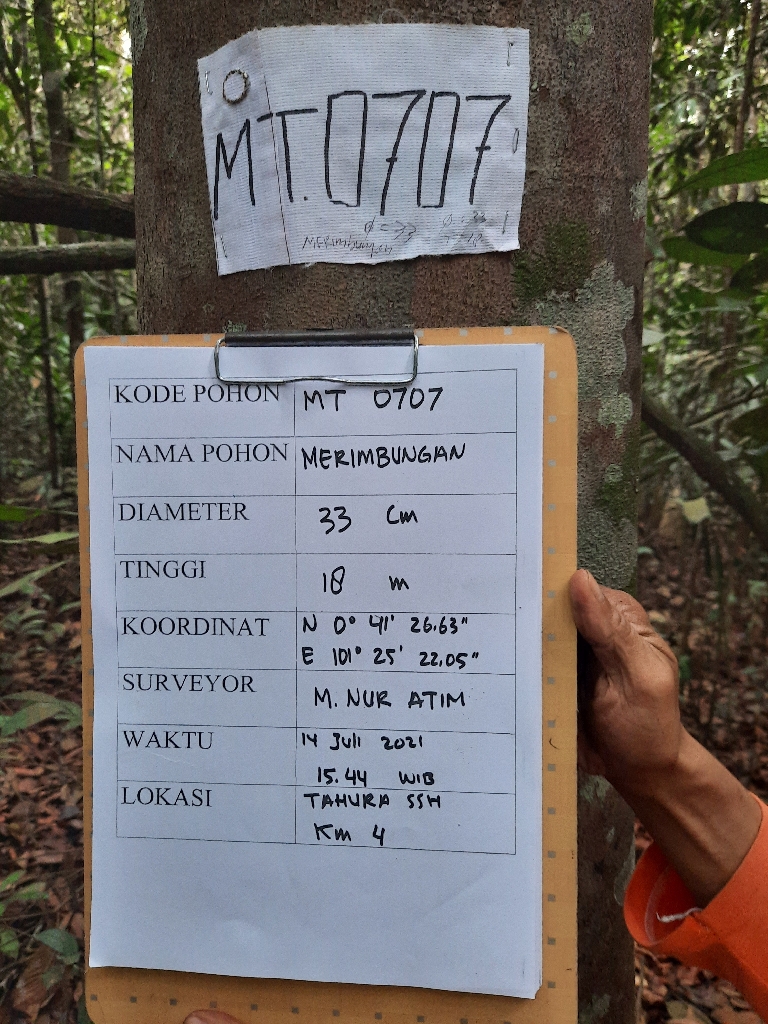 MT.0707
MERIMBUNGAN Ø = 33
KODE POHON MT 0707
NAMA POHON MERIMBUNGAN
DIAMETER 33 Cm
TINGGI 18 m
KOORDINAT N 0° 41' 26.63"
E 101° 25' 22.05"
SURVEYOR M. NUR ATIM
WAKTU 14 Juli 2021
15.44 WIB
LOKASI TAHURA SSH
Km 4